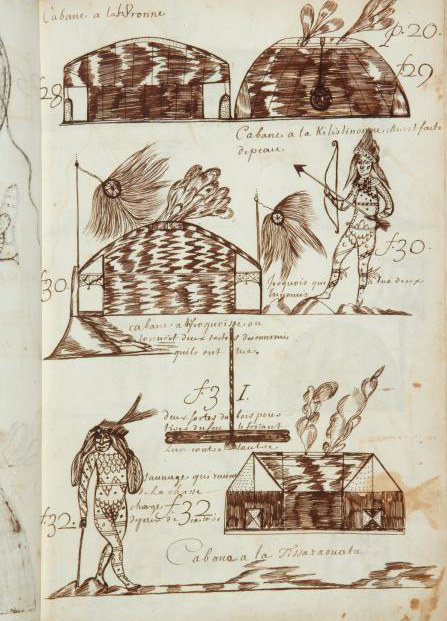 Cabane a la huronne
p. 20.
f 28
f 29
Cabane a la Kilistinonne elle est faite
de peau
f 30.
f 30.
Iroquois qui a tué deux
hurons
cabane a l'Iroquoise ou
l'on voit deux testes d'ennemis
qu'ils ont tué.
f 3 I.
deux sortes de bois pour
tirer du feu le frotant
l'un contre l'autre
sauuage qui reuient
de la chasse
chargé
de peaux de castors
f 32.
f 32
Cabane a la